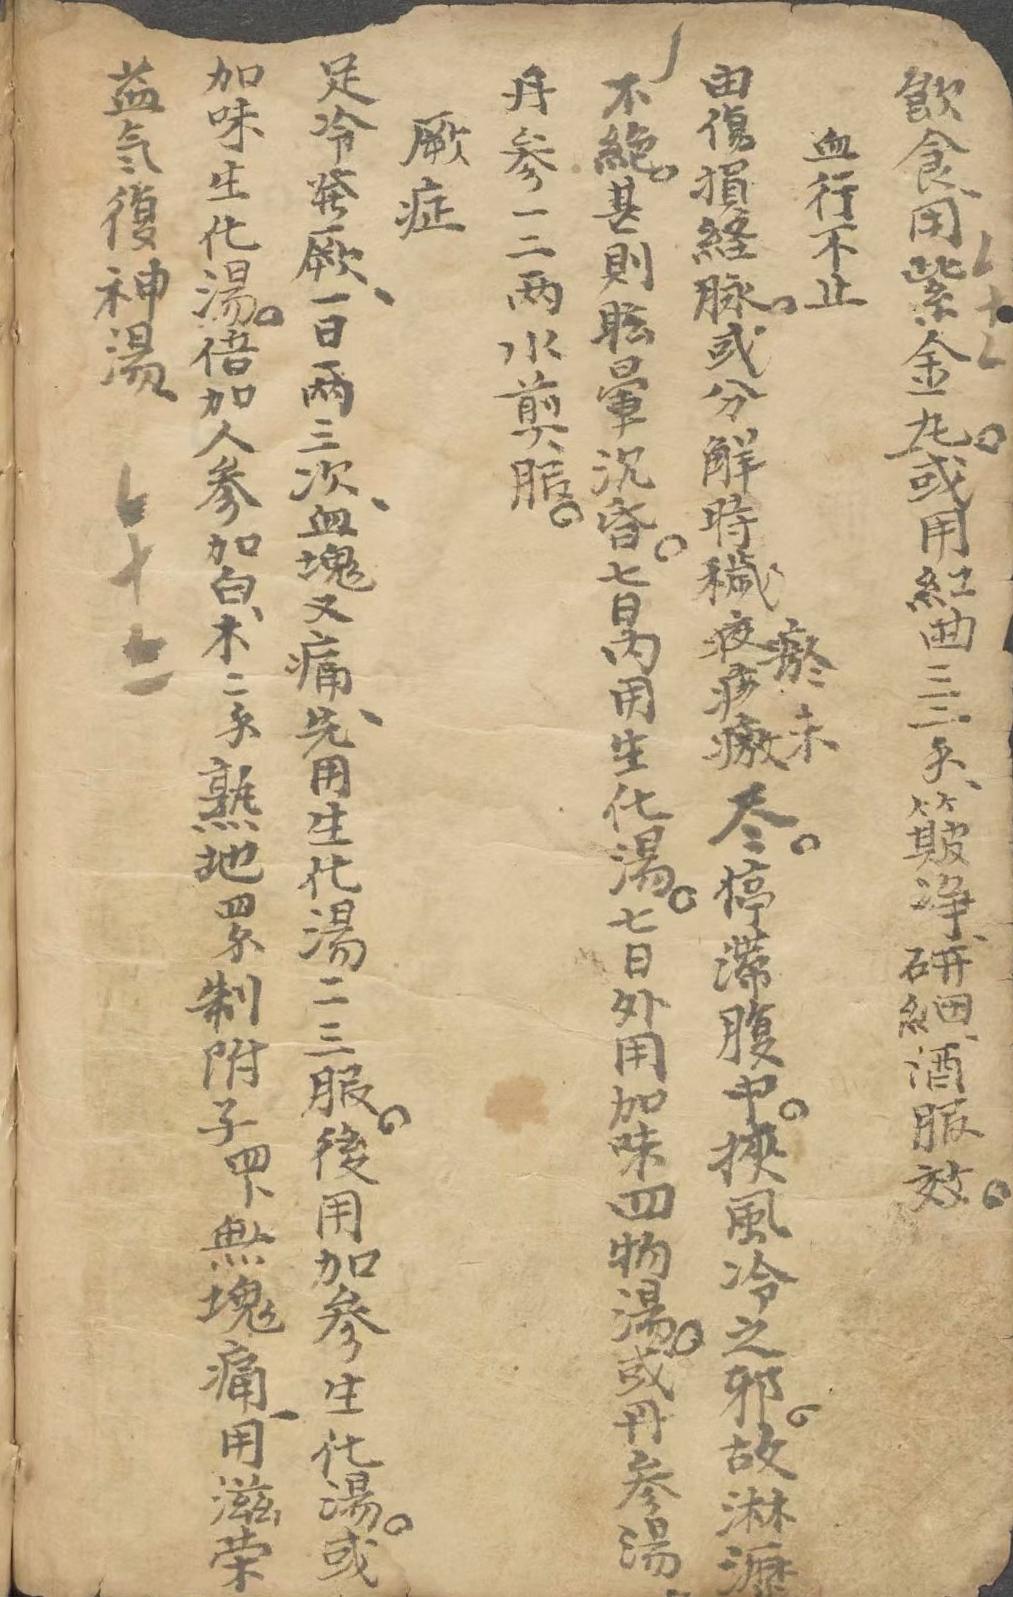 飲食、用紫金丸。或用紅曲三三錢、簸淨、研細、酒服效。
血行不止
由傷損経脉。或分解時穢液瘀未尽。停滯腹中。挾風冷之邪。故淋瀝
不絶。甚則眩暈沉昏。七日內用生化湯。七日外用加味四物湯。或丹参湯
丹参一二两水煎服。
厥症
足冷發厥、一日兩三次、血塊又痛、先用生化湯二三服。後用加参生化湯。或
加味生化湯。倍加人参加白术二錢熟地四錢制附子四卜無塊痛、用滋荣
益氣復神湯、